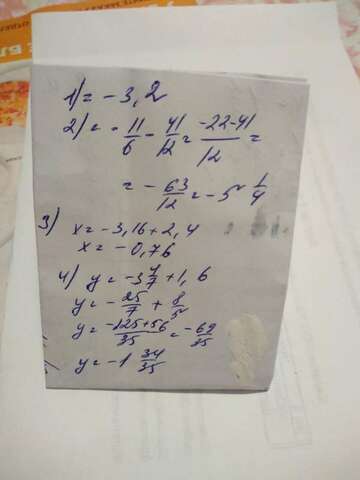 1) = -3,2
2) = - 11/6 - 41/12 = -22-41/12 =
= - 63/12 = -5 1/4
3) x = -3,16+2,4
x = -0,76
4) y = -3 4/7 + 1,6
y = - 25/7 + 8/5
y = -125+56/35 = -69/35
y = -1 34/35